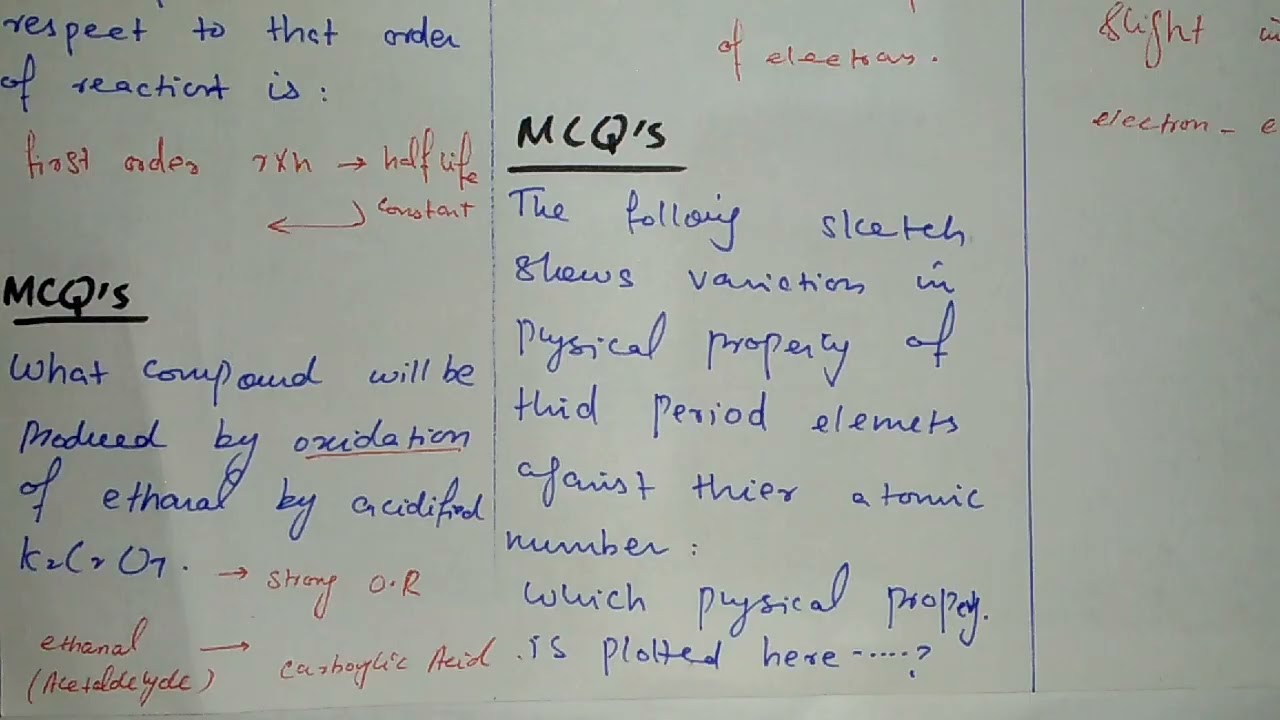 respect to that order
of reactiont is :
first order rxn → half life
constant
MCQ's
What compound will be
produced by oxidation
of ethanal by acidified
K2Cr2O7. → strong O.R
ethanal → carboylic Acid
(Acetaldelyde)
of electrons.
MCQ's
The following sketch
shows variation in
physical property of
thid period elemets
against thier atomic
number :
which physical propety.
is plotted here -.....?
slight in
electron - e